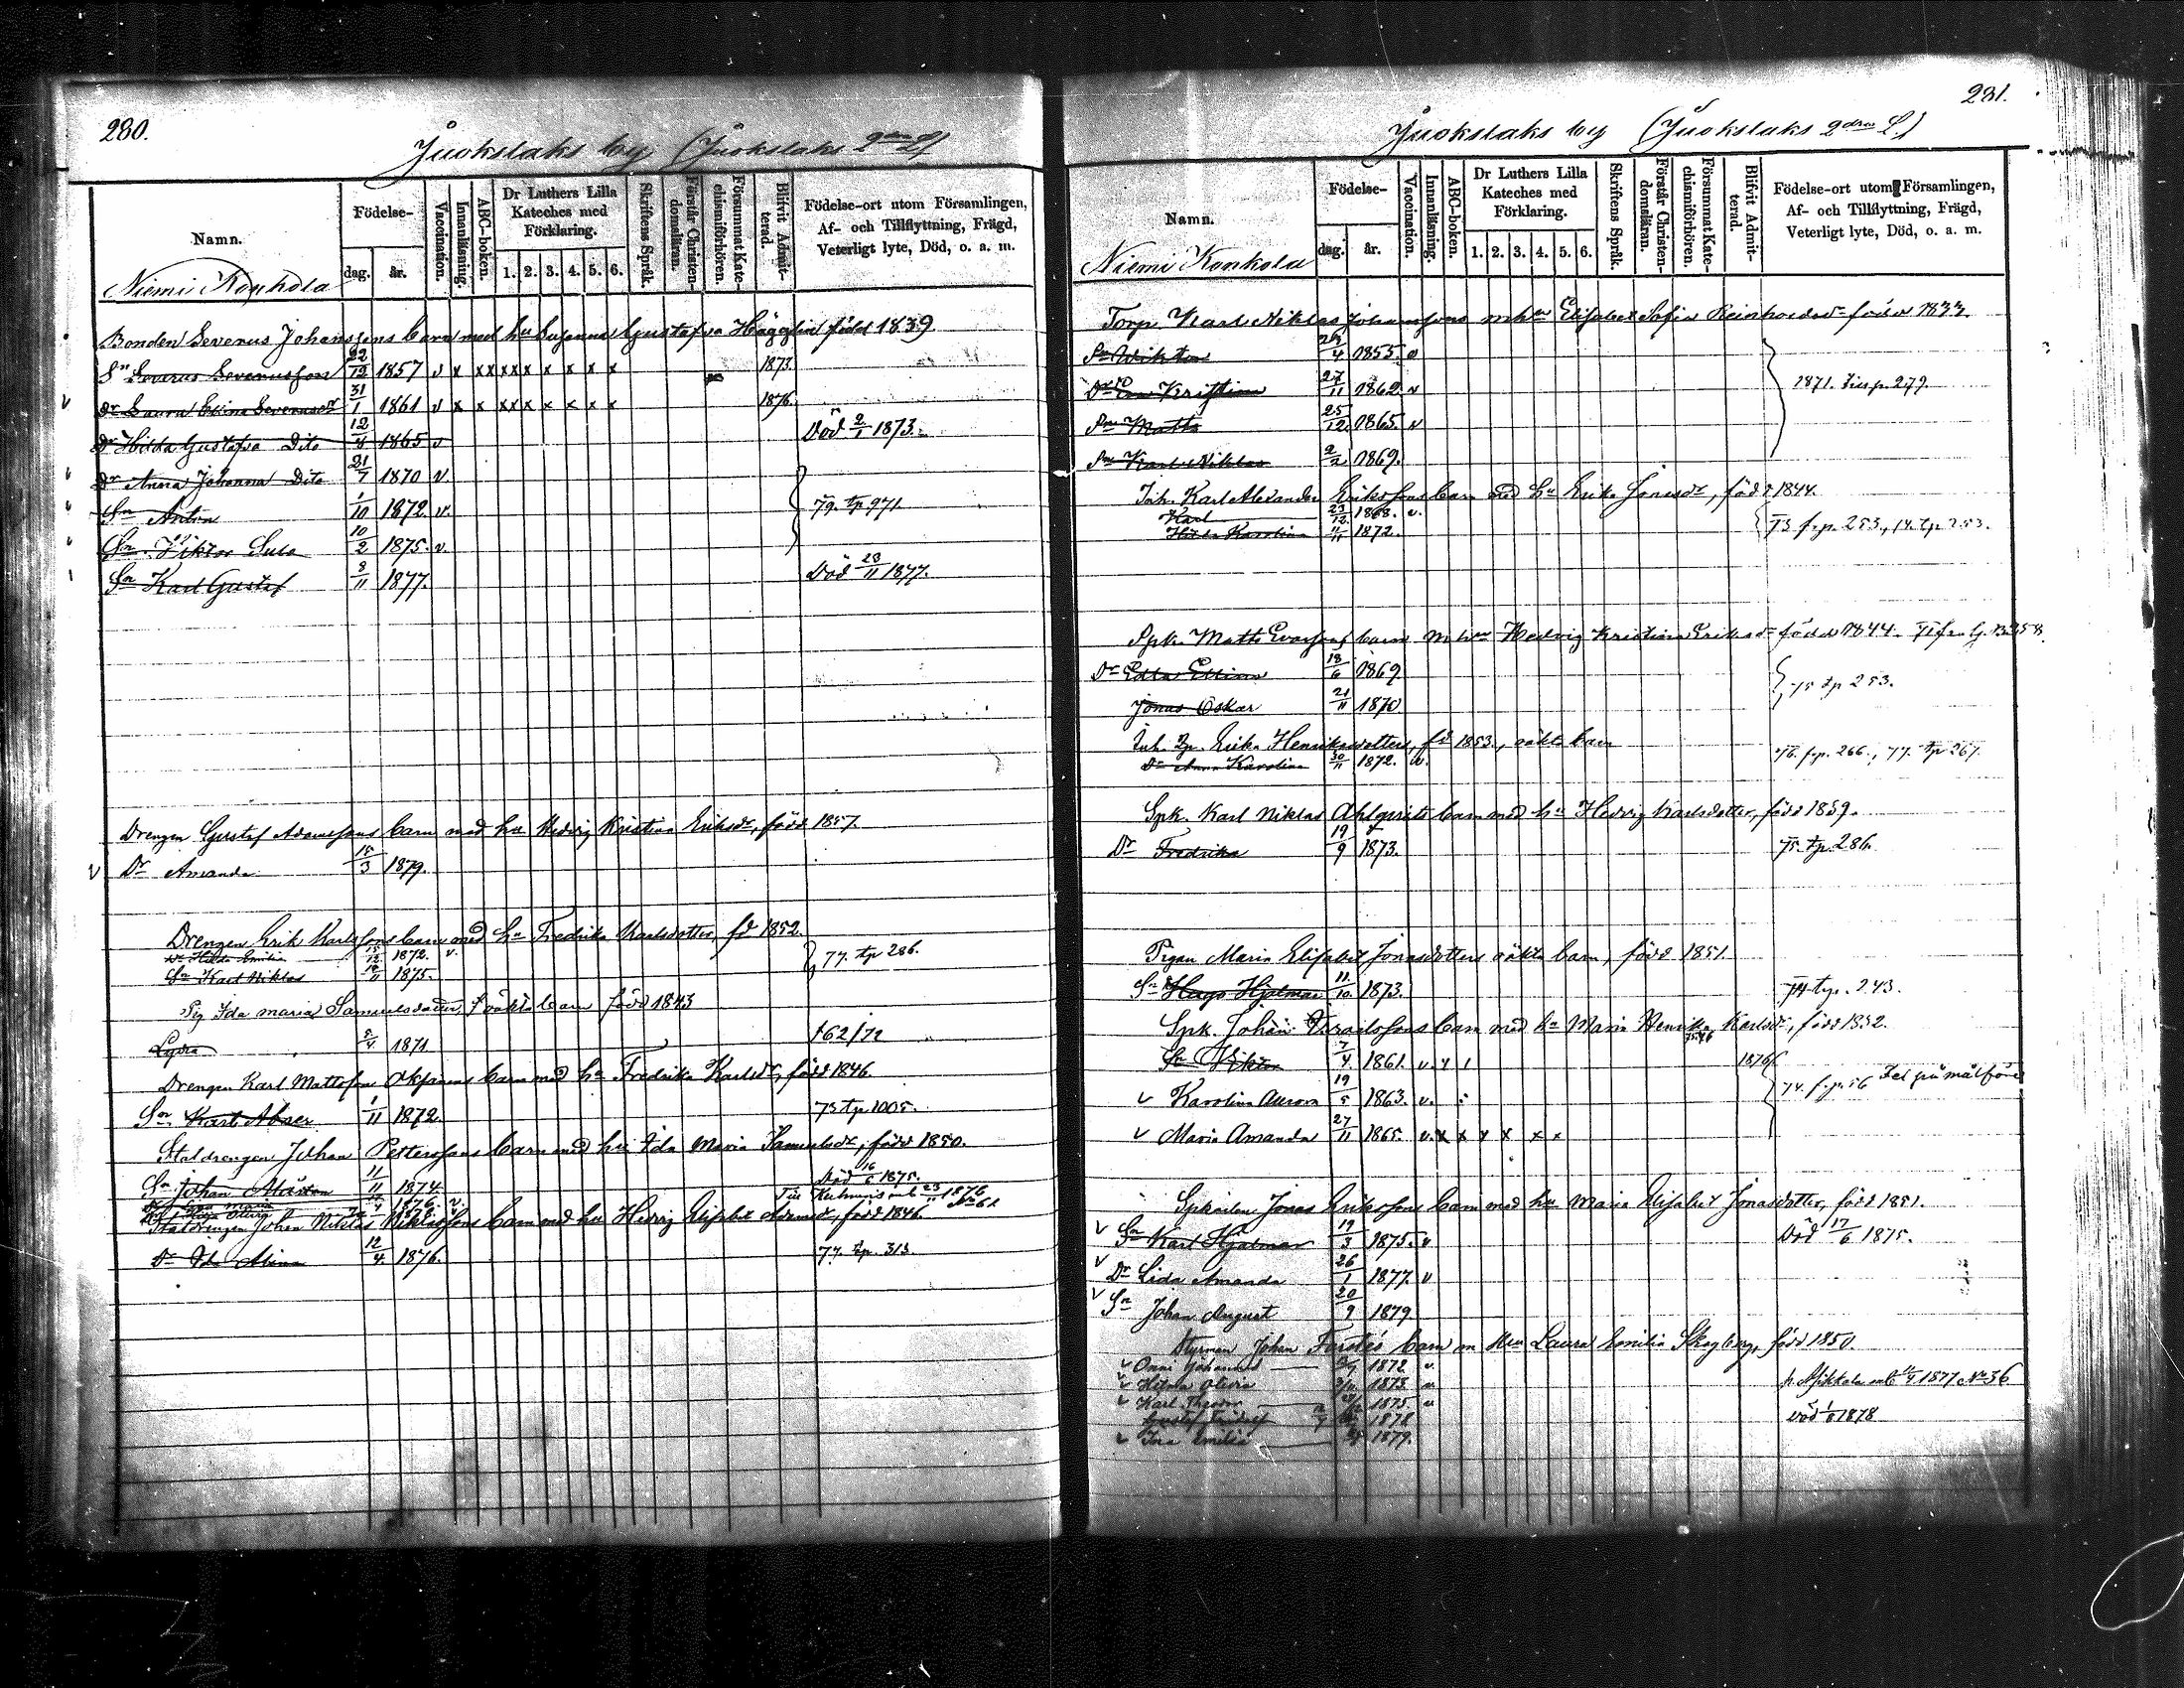 280.
Juokslaks by (Juokslaks 2dra L.)
Namn.
Födelse-
dag.
år.
Vaccination.
Innanläsning.
ABC-boken.
Dr Luthers Lilla
Kateches med
Förklaring.
1. 2. 3. 4. 5. 6.
Skriftens Språk.
Förstår Christen-
domsläran.
Försummat Kate-
chismiförhören.
Blifvit Admit-
terad.
Födelse-ort utom Församlingen,
Af- och Tillflyttning, Frägd,
Veterligt lyte, Död, o. a. m.
Niemi Konkola
Bonden Severus Johanssons barn med hu Susanna Gustafva Hägglin född 1839
Sn Severus Severusson 22/12 1857 v x x x x x x x x x 1873.
v Dr Laura Elvina Severusdr 31/1 1861 v x x x x x x x x 1876.
Dr Hilda Gustafva Dito 12/8 1865 v Död 2/1 1873.
Dr Anna Johanna Dito 21/7 1870 v.
Sn Anton 1/10 1872. v. 79. tp 971.
Sn Viktor Sulo 10/2 1875. v.
Sn Karl Gustaf 8/11 1877. Död 23/11 1877.
Drengen Gustaf Adamssons barn med hu Hedvig Kristina Eriksdr, född 1857.
v Dr Amanda 18/3 1879.
Drengen Erik Karlssons barn med hu Fredrika Karlsdotter, fd 1852.
Dr Hilda Emilia 15/12 1872. v.
Sn Karl Niklas 18/11 1875. 77. tp 286.
Pig Ida Maria Samuelsdotters oäkta barn född 1843
Lydia 5/4 1871 †62/72
Drengen Karl Mattsson barn med hu Fredrika Karlsdr, född 1846.
Sn Karl Abner 1/11 1872. 73 tp 1005.
Staldrengen Johan Petterssons barn med hu Ida Maria Samuelsdr, född 1850.
Sn Johan 11/11 1874. Död 16/6 1875.
1876 v. 23/11 1876 No 61
Staldrengen Johan Niklas Niklassons barn med hu Hedvig Elisabet Adamsdr, född 1846.
Dr Ida Alina 12/4. 1876. 77. tp. 313.
281.
Juokslaks by (Juokslaks 2dra L.)
Namn.
Födelse-
dag.
år.
Vaccination.
Innanläsning.
ABC-boken.
Dr Luthers Lilla
Kateches med
Förklaring.
1. 2. 3. 4. 5. 6.
Skriftens Språk.
Förstår Christen-
domsläran.
Försummat Kate-
chismiförhören.
Blifvit Admit-
terad.
Födelse-ort utom Församlingen,
Af- och Tillflyttning, Frägd,
Veterligt lyte, Död, o. a. m.
Niemi Konkola
Torp. Karl Niklas Johanssons mhu Elisabet Sofia Reinholdsdr född 1833.
Sn Wiktor 4 1855. v
Dr Eva Kristina 27/11 1862. v 1871. p. 279.
Sn Matts 25/12 1865. v
Sn Karl Niklas 2/2 1869.
Inh. Karl Alexander Erikssons barn med hu Erika Jonasdr, född 1844.
Karl 23/12. 1868. v.
Hilda Karolina 11 1872. 73 frp. 253., 74. tp. 253.
Spk. Matts Evassons barn mhu Hedvig Kristina Eriksdr född 1844.
Dr Edla Ellina 18/6 1869
Jonas Oskar 21/11 1870 75 tp 253.
Inh. Erika Henriksdotters, fd 1853., oäkta barn
Dr Anna Karolina 30/11 1872. v. 76. frp. 266., 77. tp 267.
Spk. Karl Niklas Ahlqvists barn med hu Hedvig Karlsdotter, född 1839.
Dr Fredrika 19/9 1873. 75. tp. 286.
Pigan Maria Elisabet Jonasdotters oäkta barn, född 1851.
Sn Hugo Hjalmar 11/10. 1873. 74 tp. 243.
Spk. Johan Israelssons barn med hu Maria Henrika Karlsdr, född 1832.
Sn Viktor 7/4. 1861. v. 1876
v Karolina Aurora 19/5 1863. v. 74. frp. 56 Fel på målföre
v Maria Amanda 27/11 1865. v. x x x x x x
Spkarlen Jonas Erikssons barn med hu Maria Elisabet Jonasdotter, född 1851.
v Sn Karl Hjalmar 19/3 1875. v Död 17/6 1875.
v Dr Lida Amanda 26/1 1877. v
v Sn Johan August 20/9 1879
Styrman Johan Forstés barn m hu Laura Emilia Skogberg, född 1850.
v Onni Johannes 1872 v.
v Hilma Olivia 1873 v. 1877 No 36
v Karl Theodor 1875 v
Gustaf Fridolf 1878 död 1/8 1878
v Ina Emilia 1879.